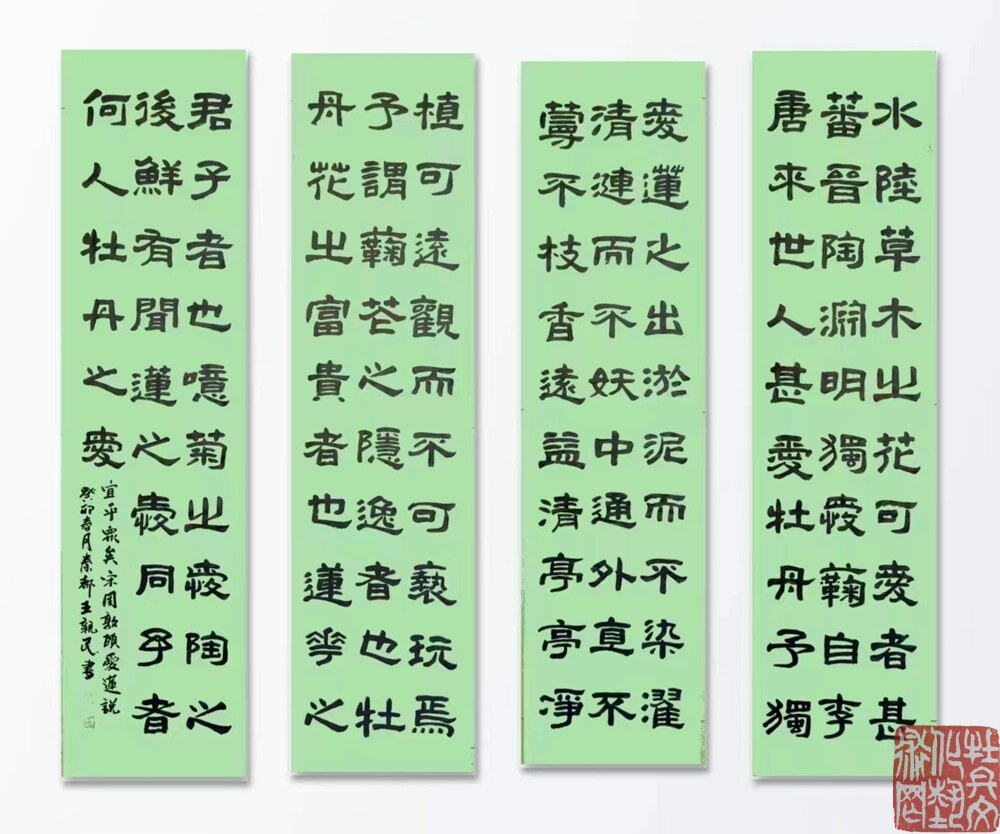 水陸草木之花可愛者甚
蕃晉陶淵明獨愛蘜自李
唐來世人甚愛牡丹予獨
愛蓮之出淤泥而不染濯
清漣而不妖中通外直不
蔓不枝香遠益清亭亭淨
植可遠觀而不可褻玩焉
予謂蘜花之隱逸者也牡
丹花之富貴者也蓮華之
君子者也噫菊之愛陶之
後鮮有聞蓮之愛同予者
何人牡丹之愛
宜乎眾矣宋周敦頤愛蓮説
癸卯春月秦都王親民書
牡丹文
化